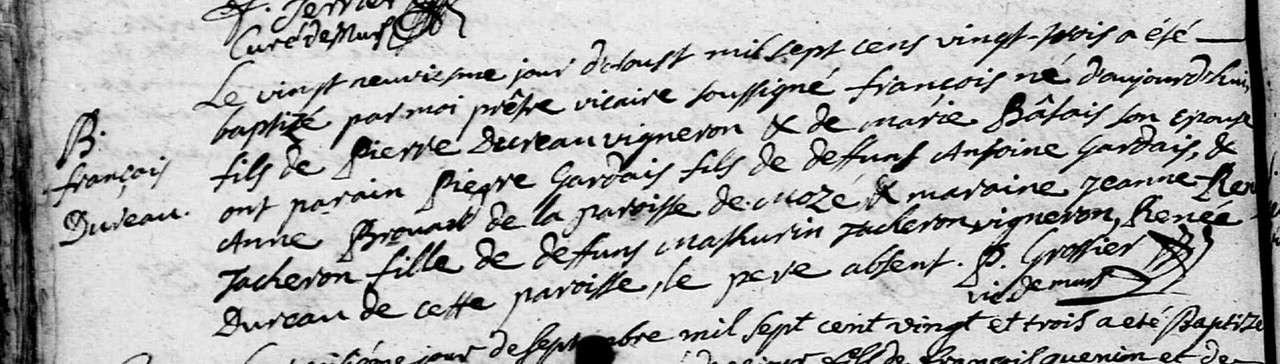 F. Terrier
Curé de Murs
Le vingt neuviesme jour d'aoust mil sept cens vingt-trois a été
baptizé par moi prêtre vicaire soussigné françois né d'aujourd'hui
B.
françois
Dureau.
fils de Pierre Dureau vigneron & de marie Bâtais son epouse
ont parain Pierre Gardais fils de deffuns Antoine Gardais, &
Anne Brouard de la paroisse de Mozé & maraine Jeanne Ren
Jacheron fille de deffuns Mathurin Jacheron vigneron, Renée
Dureau de cette paroisse, le pere absent. P. Grossier
vic de murs
jour de septembre mil sept cent vingt et trois a eté Baptizé
fils de françois guenin et de